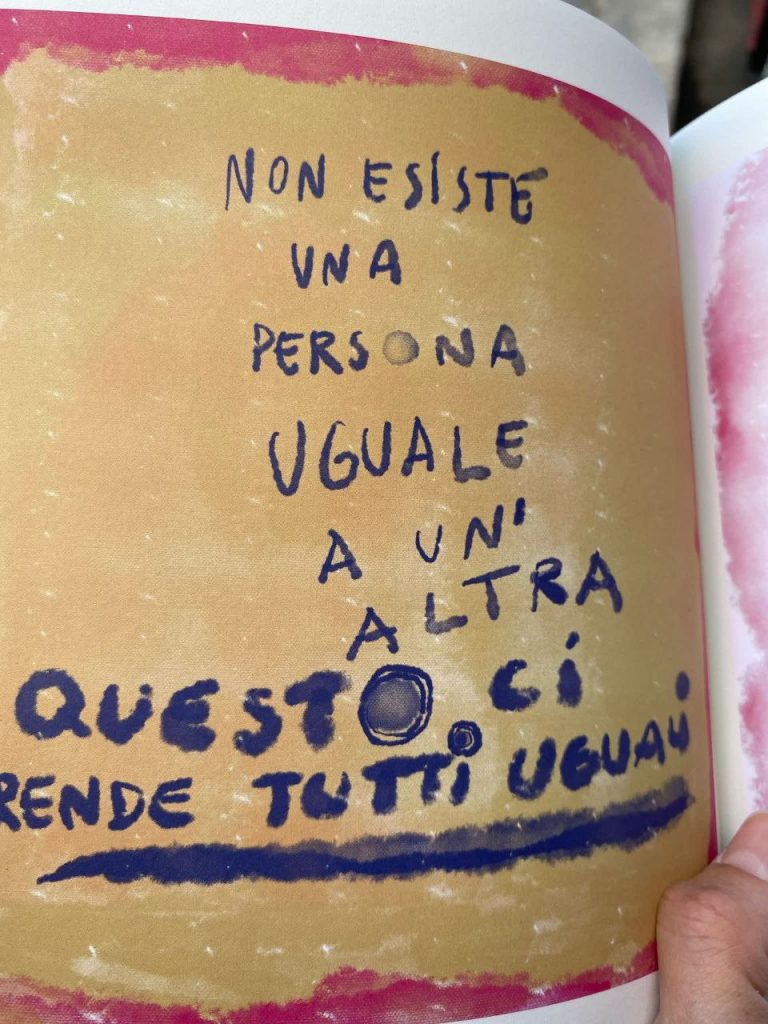 NON ESISTE
UNA
PERSONA
UGUALE
A UN'
ALTRA
QUESTO CI
RENDE TUTTI UGUALI